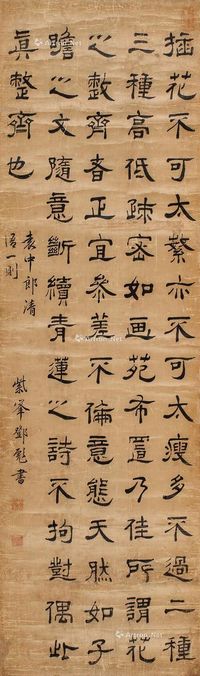 插花不可太繁亦不可太瘦多不過二種
三種高低疎密如画苑布置乃佳所謂花
之整齊者正宜叅差不倫意態天然如子
瞻之文隨意斷續青蓮之詩不拘對偶此
眞整齊也
袁中郎清
語一則
紫峯鄧彪書